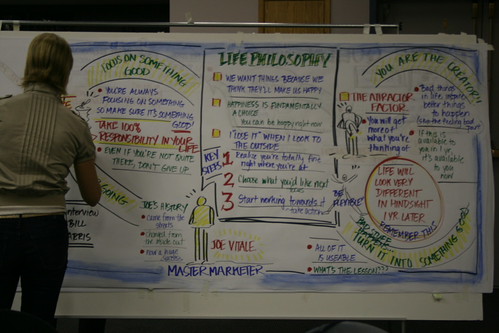 FOCUS ON SOMETHING
GOOD
YOU'RE ALWAYS
FOCUSING ON SOMETHING
SO MAKE SURE IT'S SOMETHING
GOOD!
TAKE 100%
RESPONSIBILITY IN YOUR
LIFE
EVEN IF YOU'RE NOT QUITE
THERE, DON'T GIVE UP
GOING!
Interview
BILL
HARRIS
JOE'S HISTORY
Came from the
streets
learned from
the inside out
now a huge
success
JOE VITALE
MASTER MARKETER
LIFE PHILOSOPHY
WE WANT THINGS BECAUSE WE
THINK THEY'LL MAKE US HAPPY
HAPPINESS IS FUNDAMENTALLY
A CHOICE
You can be happy right now!
I "LOSE IT" WHEN I LOOK TO
THE OUTSIDE
KEY
STEPS
1 Realize you're totally fine
right where you're at
2 Choose what you'd like next
3 Start working towards it
BE
FLEXIBLE
ALL OF IT
IS USEABLE
WHAT'S THE LESSON???
YOU ARE THE CREATOR!!
THE ATTRACTOR
FACTOR
You will get
more of
what you're
thinking of!
Bad things
in life,
better
things
to happen
If this is
available to
you in 1 yr
it's available
to you
now!
LIFE WILL
LOOK VERY
DIFFERENT
IN HINDSIGHT
1 YR LATER
REMEMBER THIS
TURN IT INTO SOMETHING GOOD